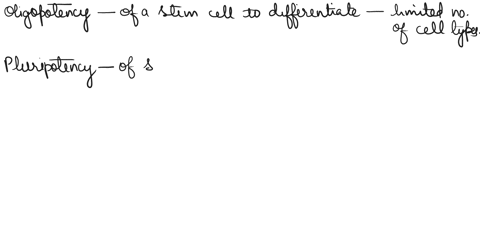 Oligopotency — of a stem cell to differentiate — limited no.
of cell types.
Pluripotency — of s